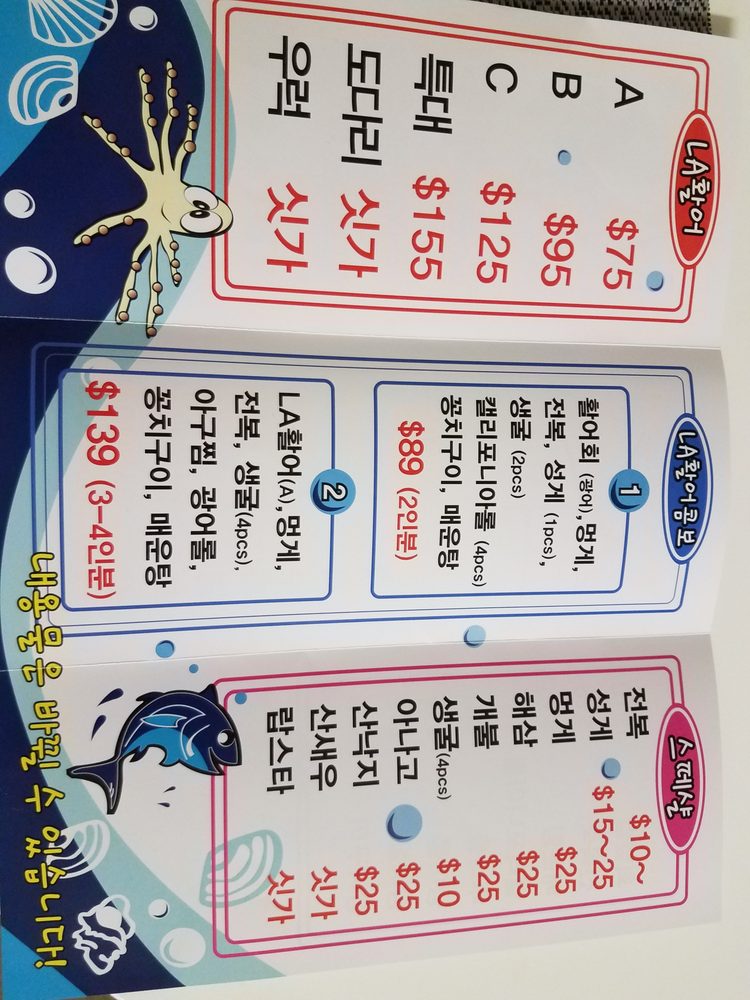 LA활어
A $75
B $95
C $125
특대 $155
도다리 싯가
우럭 싯가
LA활어콤보
1
활어회 (광어), 멍게,
전복, 성게 (1pcs),
생굴 (2pcs)
캘리포니아롤 (4pcs)
꽁치구이, 매운탕
$89 (2인분)
2
LA활어(A), 멍게,
전복, 생굴(4pcs),
아구찜, 광어롤,
꽁치구이, 매운탕
$139 (3-4인분)
스페샬
전복 $10~
성게 $15~25
멍게 $25
해삼 $25
개불 $25
생굴(4pcs) $10
아나고 $25
산낙지 $25
산새우 싯가
랍스타 싯가
내용물은 바뀔 수 있습니다!